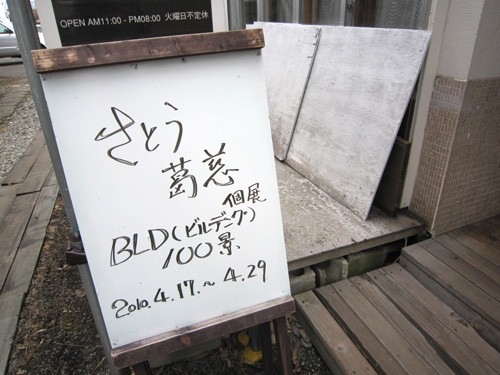 OPEN AM11:00 - PM08:00 火曜日不定休
さとう
葛慈
個展
BLD(ビルデング)
100景
2010.4.17.~4.29